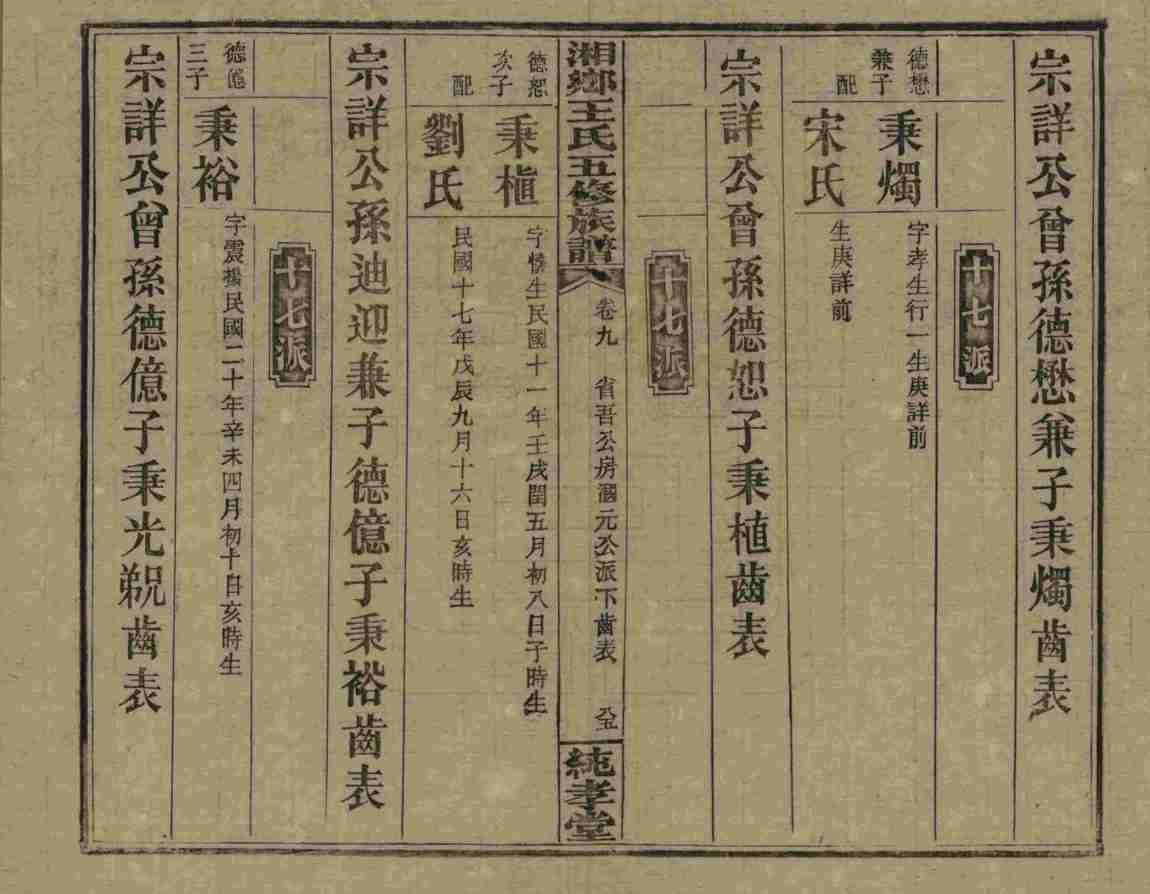 宗詳公曾孫德懋兼子秉燭齒表
十七派
德懋兼子
秉燭
字孝生行一生庚詳前
配
宋氏
生庚詳前
宗詳公曾孫德恕子秉植齒表
十七派
湘鄉王氏五修族譜
卷九 省吾公房涸元公派下齒表 八五
純孝堂
德恕次子
秉植
字懷生民國十一年壬戌閏五月初八日子時生
配
劉氏
民國十七年戊辰九月十六日亥時生
宗詳公孫迪迎兼子德億子秉裕齒表
十七派
德億三子
秉裕
字震揚民國二十年辛未四月初十日亥時生
宗詳公曾孫德億子秉光鵕齒表